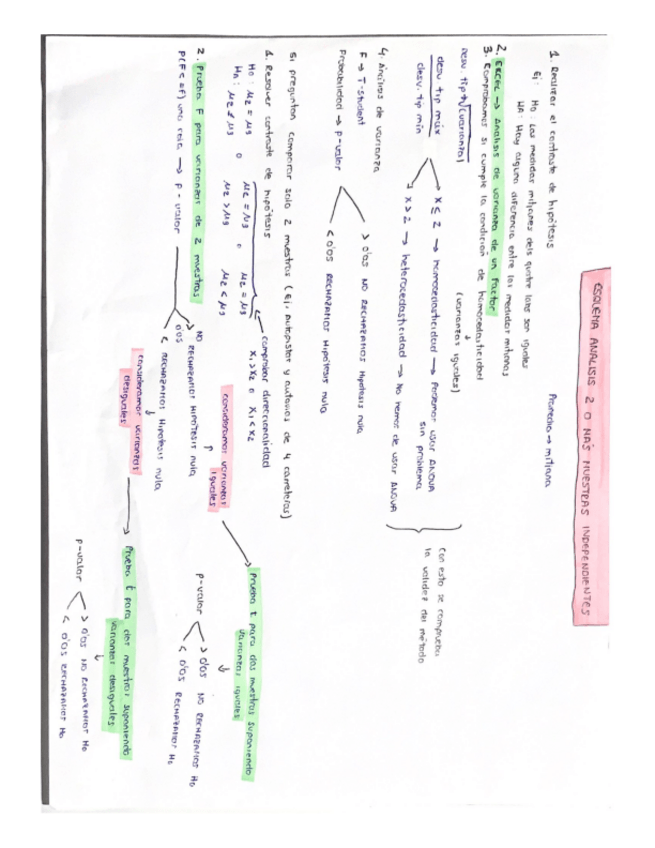 ESQUEMA ANALISIS 2 O MÁS MUESTRAS INDEPENDIENTES
1. Realizar el contraste de hipótesis
Promedio → mitjana
Ej: H0: Las medidas mitjanes dels quatre lots son iguales
HA: Hay alguna diferencia entre las medidas mitjanas
2. EXCEL → Analisis de varianza de un factor
3. Comprobamos si cumple la condición de homocedasticidad
(varianzas iguales)
desv. tip → √(varianza)
desv tip max
desv. tip min
x ≤ 2 → homocedasticidad → Podemos usar ANOVA sin problema
x > 2 → heterocedasticidad → No hemos de usar ANOVA
Con esto se comprueba
la validez del método
4. Análisis de varianza
F → T-student
Probabilidad → p-valor
> 0'05 NO RECHAZAMOS Hipótesis nula
< 0'05 RECHAZAMOS Hipótesis nula
Si preguntan comparar solo 2 muestras (Ej, autopistas y autovías de 4 carreteras)
1. Resolver contraste de hipótesis
H0: μ2 = μ3 o μ2 = μ3 o μ2 = μ3
HA: μ2 ≠ μ3 μ2 > μ3 μ2 < μ3
comprobar direccionalidad
x1 > x2 o x1 < x2
2. Prueba F para varianzas de 2 muestras
P(F<=f) una cola → p-valor
> 0'05 NO RECHAZAMOS Hipótesis nula
consideramos varianzas iguales
Prueba t para dos muestras suponiendo
varianzas iguales
p-valor
> 0'05 NO RECHAZAMOS H0
< 0'05 RECHAZAMOS H0
< 0'05 RECHAZAMOS Hipótesis nula
consideramos varianzas
desiguales
Prueba t para dos muestras suponiendo
varianzas desiguales
p-valor
> 0'05 NO RECHAZAMOS H0
< 0'05 RECHAZAMOS H0